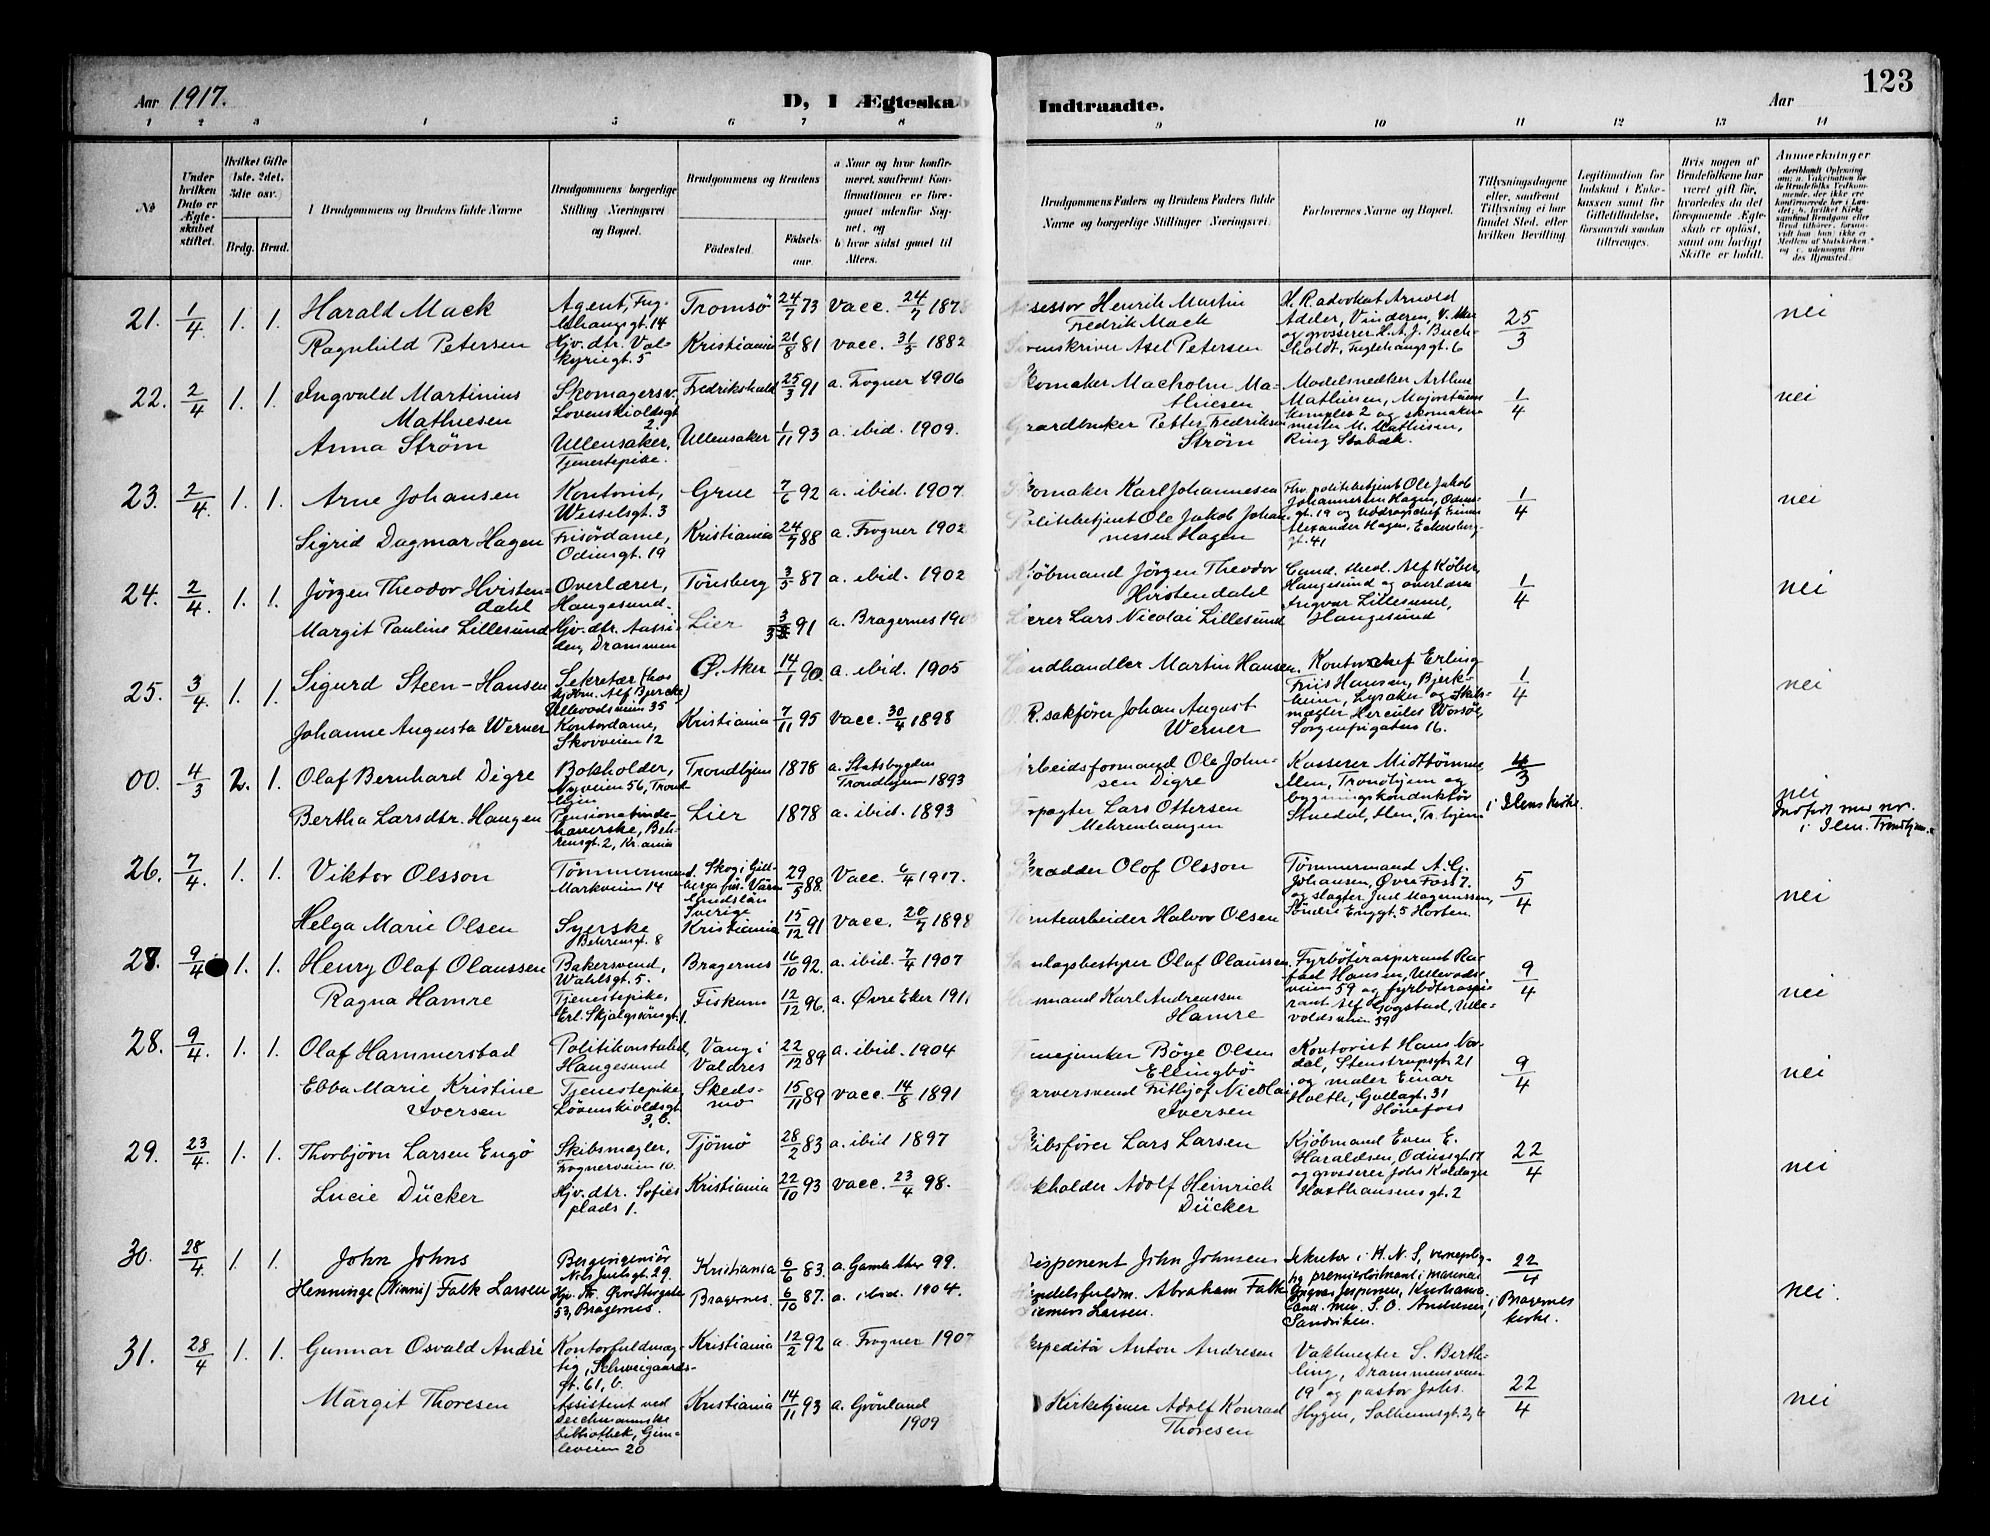 Aar 1917.
D, I Ægteskab
Indtraadte.
Aar
123
1 2 3 4 5 6 7 8 9 10 11 12 13 14
№
Under hvilken Dato er Ægteskabet stiftet.
Hvilket Gifte 1ste, 2det, 3die osv.
Brdg. Brud.
I Brudgommens og Brudens fulde Navne
Brudgommens borgerlige Stilling Næringsvei og Bopæl.
Brudgommens og Brudens
Fødested.
Fødselsaar.
a Naar og hvor konfirmeret, samfremt Konfirmationen er foregaaet udenfor Sognet, og
b) hvor sidst gaaet til Alters.
Brudgommens Faders og Brudens Faders fulde Navne og borgerlige Stillinger Næringsvei
Forlovernes Navne og Bopæl.
Tillysningsdagene eller, samfremt Tillysning ei har fundet Sted, efter hvilken Bevilling
Legitimation for Indskud i Enkekassen samt for Giftetilladelse, forsaavidt saadan tiltrænges.
Hvis nogen af Brudefolkene har været gift før, hvorledes da det foregaaende Ægteskab er opløst, samt om lovligt Skifte er holdt.
Anmerkninger
21. 1/4 1. 1. Harald Mack Agent, Fuglehaugsgt. 14 Tromsö 24/7 73 vacc. 24/7 1878 Assessor Henrik Martin Fredrik Mack H. R. advokat Arnold Adler, Vinderen, V. Aker og grosserer H. A. J. Buchholdt, Fuglehaugsgt. 6 25/3 nei
Ragnhild Petersen Hjv. dtr. Valkyriegt. 5 Kristiania 21/8 81 vacc. 31/5 1882 Sorenskriver Axel Petersen
22. 2/4 1. 1. Ingvald Martinius Mathiesen Skomagersv., Lövenskioldsgt 2. Fredrikshald 25/3 91 a. Frogner 1906 Skomaker Macholm Mathiesen Modelsnedker Arthur Mathiesen, Majorstuens kompleks 2 og skomakermester M. Mathiesen, Ring Stabæk. 1/4 nei
Anna Ström Ullensaker, Tjenestepike. Ullensaker 1/11 93 a. ibid. 1909. Gaardbruker Petter Fredriksen Ström
23. 2/4 1. 1. Arne Johansen Kontorist, Wesselsgt. 3 Grue 7/6 92 a. ibid. 1907. Skomaker Karl Johannesen Fhv. politibetjent Ole Jakob Johannessen Hagen, Odinsgt. 19 og Alexander Hagen, Eckersberggt. 41 1/4 nei
Sigrid Dagmar Hagen Frisördame, Odinsgt. 19 Kristiania 24/7 88 a. Frogner 1902 Politibetjent Ole Jakob Johannessen Hagen
24. 2/4 1. 1. Jörgen Theodor Hvistendahl Overlærer, Haugesund. Tönsberg 3/5 87 a. ibid. 1902 Kjöbmand Jörgen Theodor Hvistendahl Cand. theol. Alf Köber, Haugesund og overlærer Ingvar Lillesund, Haugesund 1/4 nei
Margit Pauline Lillesund Hjv. dtr. Aassiden, Drammen Lier 3/3 91 a. Bragernes Lærer Lars Nicolai Lillesund
25. 3/4 1. 1. Sigurd Steen-Hansen Sekretær (hos kjöbm. Alf Bjercke) Ullevoldsveien 35 Ø. Aker 14/1 90. a. ibid. 1905 Landhandler Martin Hansen Kontorchef Erling Friis Hansen, Bjerkheim, Lysaker og Skibsmægler Hercules Worsöe, Sorgenfrigaten 16. 1/4 nei
Johanne Augusta Werner Kontordame, Skovveien 12 Kristiania 7/11 95 vacc. 30/4 1898 O. R. sakförer Johan August Werner
00. 4/3 2. 1. Olaf Bernhard Digre Bokholder, Nyveien 56, Trondhjem Trondhjem 1878 a. Statsbygden Trondhjem 1893 Arbeidsformand Ole Johnsen Digre Kasserer Midttömme, Ilen, Trondhjem og bygningskonduktör Stuedal, Ilen, Tr.hjem 4/3 i Ilens kirke. nei
Bertha Larsdtr. Haugen Pensionatindehaverske, Behrensgt. 2, Kr.ania Lier 1878 a. ibid. 1893 Forpagter Lars Ottersen Mehrenhaugen Indfört med nr. i Ilen, Trondhjem.
26. 7/4 1. 1. Viktor Olsson Tömmermand. Markveien 14 Skog i Gillberga fös. Värmlandslän Sverige 29/5 88. Vacc. 6/4 1917. Skrædder Olof Olsson Tömmermand A. G. Johansen, Øvre Foss 7. og slagter Juel Magnussen, Söndre Enggt. 5 Horten. 5/4 nei
Helga Marie Olsen Syerske Behrensgt. 8 Kristiania 15/12 91 vacc. 20/7 1898 Tomtearbeider Halvor Olsen
27. 9/4 1. 1. Henry Olaf Olaussen Bakersvend, Wahlsgt. 5. Bragernes 16/10 92. a. ibid. 7/4 1907 Samlagsbestyrer Olaf Olaussen. Fyrböteraspirant Rafael Hansen, Ullevoldsveien 59 og fyrböteraspirant Alf Gogstad, Ullevoldsveien 59 9/4 nei
Ragna Hamre Tjenestepike, Erl. Skjalgssönsgt. 1. Fiskum 12/12 96. a. Øvre Eker 1911 Karl Andreassen Hamre
28. 9/4 1. 1. Olaf Hammerstad Politikonstabel, Haugesund Vang i Valdres 22/12 89 a. ibid. 1904 Fanejunker Böye Olsen Ellingbö Kontorist Hans Nordal, Stenstrupsgt. 21 og maler Einar Holth, Gullagt. 31 Hönefoss 9/4 nei
Ebba Marie Kristine Iversen Tjenestepike, Lövenskioldsgt 3, b. Skedsmo 15/11 89 vacc. 14/8 1891 Garversvend Fritjof Nicolai Iversen
29. 23/4 1. 1. Thorbjörn Larsen Engö Skibsmægler, Frognerveien 10. Tjömö 28/2 83 a. ibid 1897 Skibsförer Lars Larsen Kjöbmand Even E. Haraldsen, Odinsgt. 17 og grosserer Johs Kaldager Hasthausensgt. 2 22/4 nei
Lucie Dücker Hjv. dtr. Sofies plads 1. Kristiania 22/10 93 vacc. 23/4 98. Bokholder Adolf Heinrich Dücker
30. 28/4 1. 1. John Johns Bergingeniör Nils Juelsgt. 29. Kristiania 6/6 83. a. Gamle Aker 99. Disponent John Johnsen Sekretær i K. N. S., vernepligtig premierlöitnant i marinen Yngvar Jespersen, Kristiania. Cand. min. S. O. Andresen, Sandviken. 22/4 i Bragernes kirke. nei.
Henninge (Ninni) Falk Larsen Hjv. dtr. Øvre Storgate 53, Bragernes. Bragernes. 6/10 87. a. ibid. 1904. Handelsfuldm. Abraham Falk Siemers Larsen.
31. 28/4 1. 1. Gunnar Osvald André Kontorfuldmægtig, Schweigaardsgt. 61, b. Kristiania 12/2 92 a. Frogner 1907 Ekspeditör Anton Andresen Vaktmester S. Berthling, Drammensveien 19 og pastor Johs. Hygen, Solheimsgt. 2, b 22/4 nei
Margit Thoresen Assistent ved Deichmannske bibliothek, Gimleveien 20 Kristiania 14/11 93 a. Grönland 1909 Kirketjener Adolf Konrad Thoresen